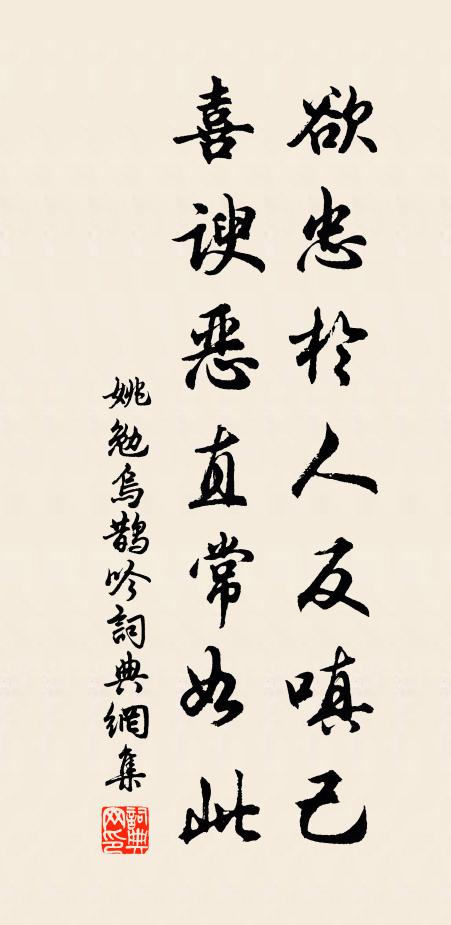 欲忠於人反嗔己
喜諛惡直常如此
姚勉烏鵲吟詞典網集
詞典網印